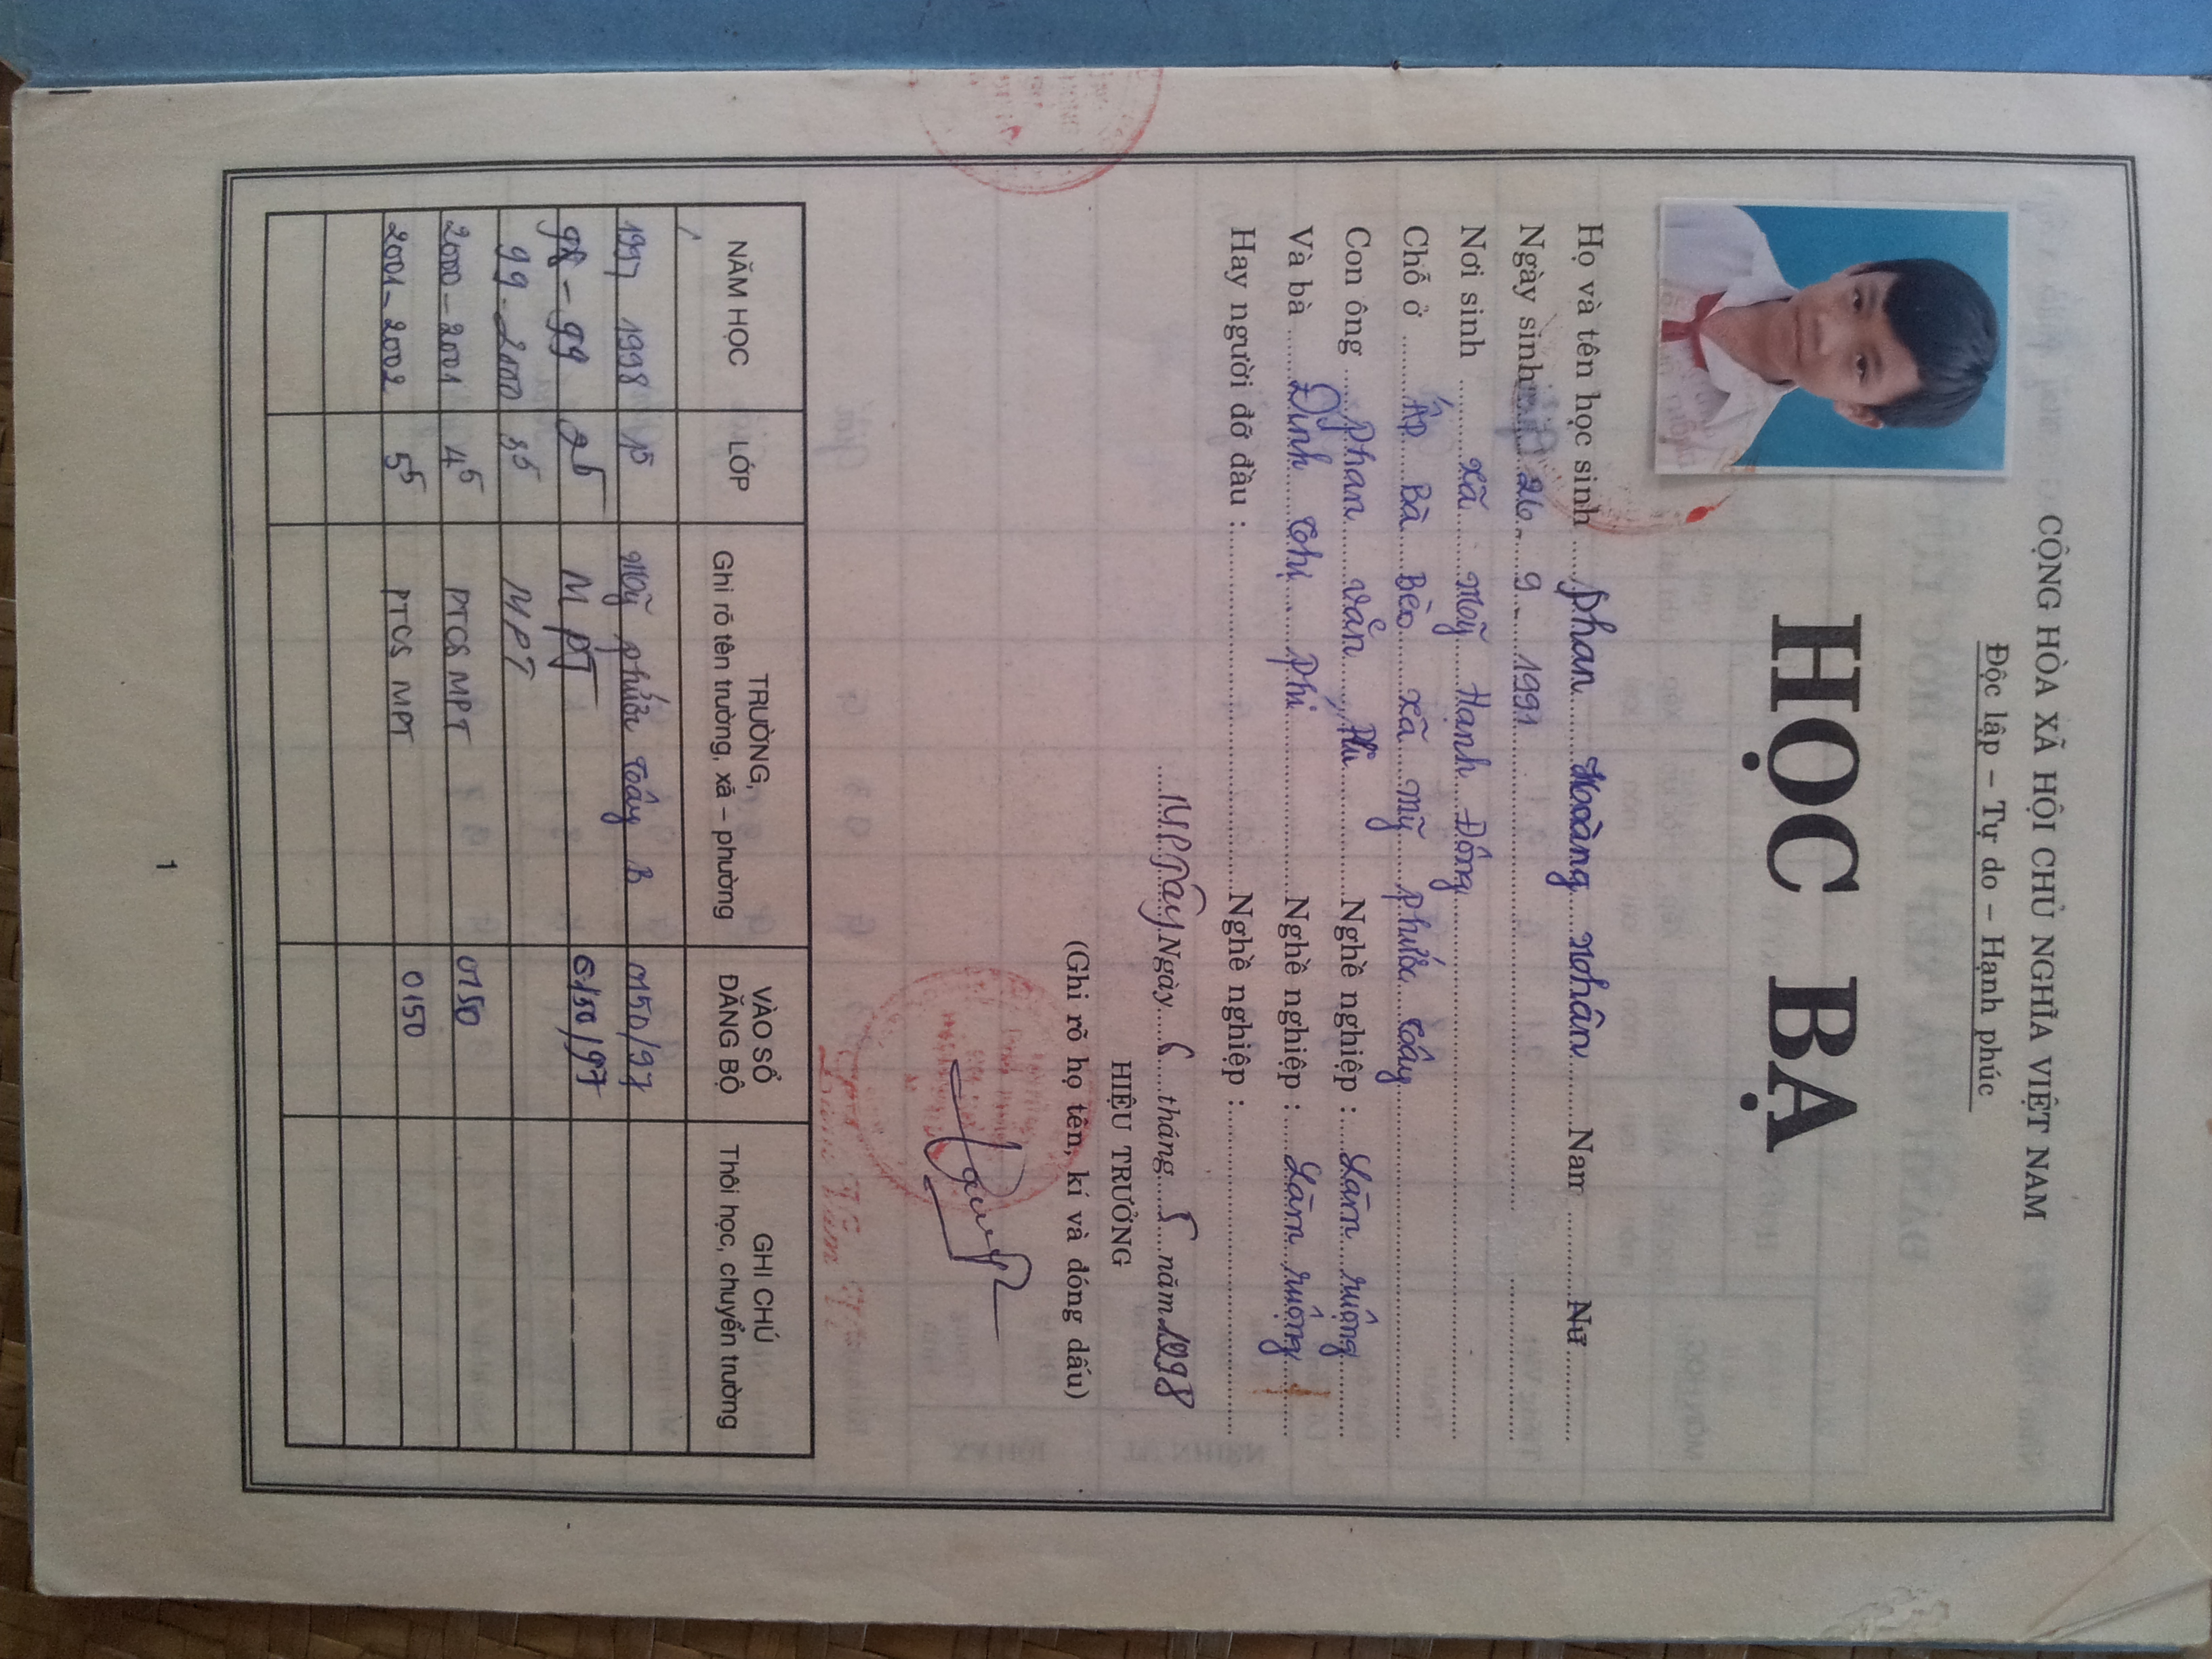 CỘNG HÒA XÃ HỘI CHỦ NGHĨA VIỆT NAM
Độc lập – Tự do – Hạnh phúc
HỌC BẠ
Họ và tên học sinh Phan Hoàng Nhân Nam Nữ
Ngày sinh 26 - 9 - 1991
Nơi sinh xã Mỹ Hạnh Đông
Chỗ ở Ấp Bà Bèo xã Mỹ Phước Tây
Con ông Phan Văn Nghề nghiệp : Làm ruộng
Và bà Đinh Thị Phi Nghề nghiệp : Làm ruộng
Hay người đỡ đầu : Nghề nghiệp :
MP Tây Ngày 6 tháng 5 năm 1998
HIỆU TRƯỞNG
(Ghi rõ họ tên, kí và đóng dấu)
NĂM HỌC LỚP TRƯỜNG, Ghi rõ tên trường, xã – phường VÀO SỔ ĐĂNG BỘ GHI CHÚ Thôi học, chuyển trường
1997 1998 15 Mỹ Phước Tây B 0150/97
98 - 99 25 MPT 0150/97
99 - 2000 35 MPT
2000 - 2001 45 PTCS MPT 0150
2001 - 2002 55 PTCS MPT 0150
1